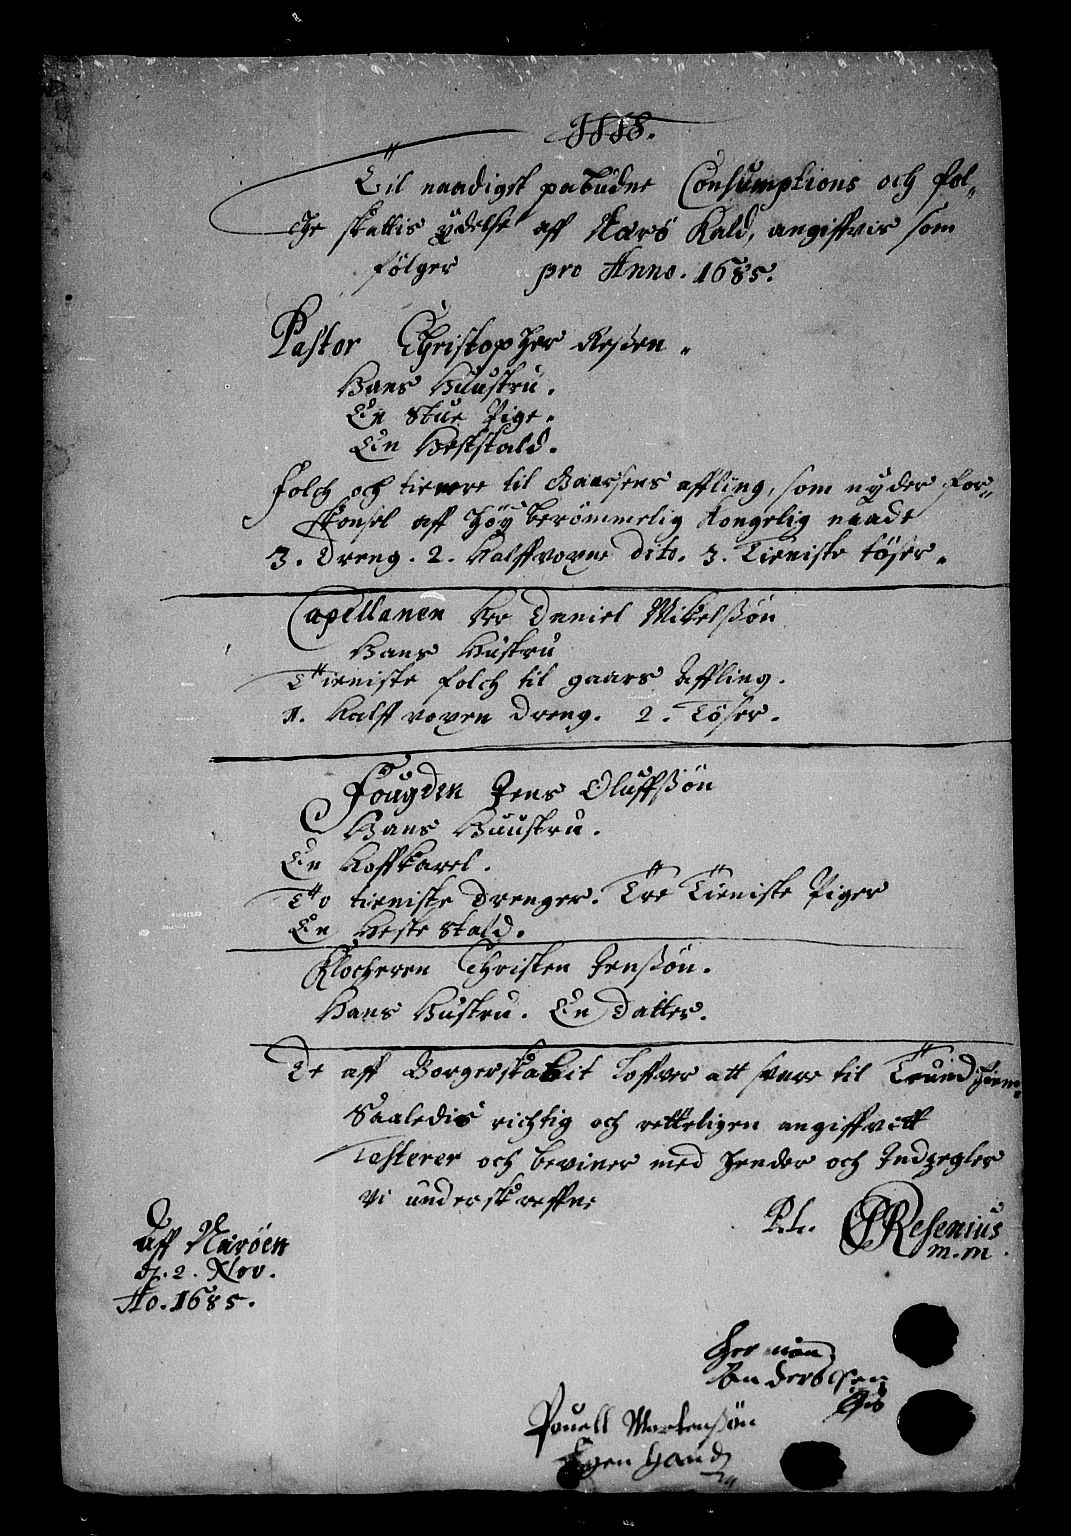 Til naadigst paabudne Consumptions och fol-
che skattis ydelse aff Narö Kald, angiffvis som
følger pro Anno. 1685.
Pastor Christopher Reßen.
Hans Huustru.
En Stue Pige.
En Heststald.
Folch och tienere til Gaarsens affling, som nyder for-
skonsel aff Høyberömmelig Kongelig naade
3. Dreng. 2. Halffvoxne dito. 3. Tieniste töser.
Capellanen Her Daniel Mikelßön
Hans Hustru
Tieniste folch til gaars Affling.
1. Halff voxen Dreng. 2. Töser.
Fougden Jens Oluffßön
Hans Huustru.
En Koffkarel.
Tho tieniste Drenger. Tre Tieniste Piger
En Heste Stald.
Klocheren Christen Jenßön.
Hans Hustru. En Datter.
De aff Borgerskabit loffver att svare til Trundhiem.
Saaledis richtig och retteligen angiffvett
Testerer och beviner med Hender och Indzegler
vi underskreffne
Aff Naröen
d. 2. Nov.
Ao. 1685.
CResenius
m.m.
Herman
Anderssen
Pouell Mortenßön
Egen Haand